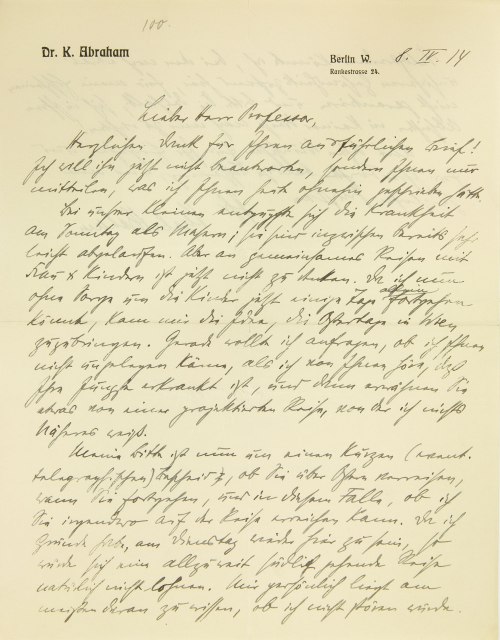 100.
Dr. K. Abraham
Berlin W. 8. IV. 14
Rankestrasse 24.
Lieber Herr Professor,
Herzlichen Dank für Ihren ausführlichen Brief!
Ich will ihn jetzt nicht beantworten, sondern Ihnen nur
mitteilen, was ich Ihnen heute ohnehin geschrieben hätte.
Bei unsrer Kleinen entpuppte sich die Krankheit
am Sonntag als Masern; sie sind inzwischen bereits sehr
leicht abgelaufen. Aber an gemeinsames Reisen mit
Frau & Kindern ist jetzt nicht zu denken. Da ich nun
ohne Sorge um die Kinder jetzt einige Tage allein fortgehen
könnte, kam mir die Idee, die Ostertage in Wien
zuzubringen. Gerade wollte ich anfragen, ob ich Ihnen
nicht ungelegen käme, als ich von Ihnen höre, daß
Ihre Jüngste erkrankt ist, und dann erwähnen Sie
etwas von einer projektierten Reise, von der ich nichts
Näheres weiß.
Meine Bitte ist nun um einen kurzen (event.
telegraphischen) Bescheid, ob Sie über Ostern verreisen,
wann Sie fortgehen, und in diesem Falle, ob ich
Sie irgendwo auf der Reise erreichen kann. Da ich
Gründe habe, am Dienstag wieder hier zu sein, so
würde sich eine allzuweit südlich gehende Reise
natürlich nicht lohnen. Mir persönlich liegt am
meisten daran zu wissen, ob ich nicht stören würde.